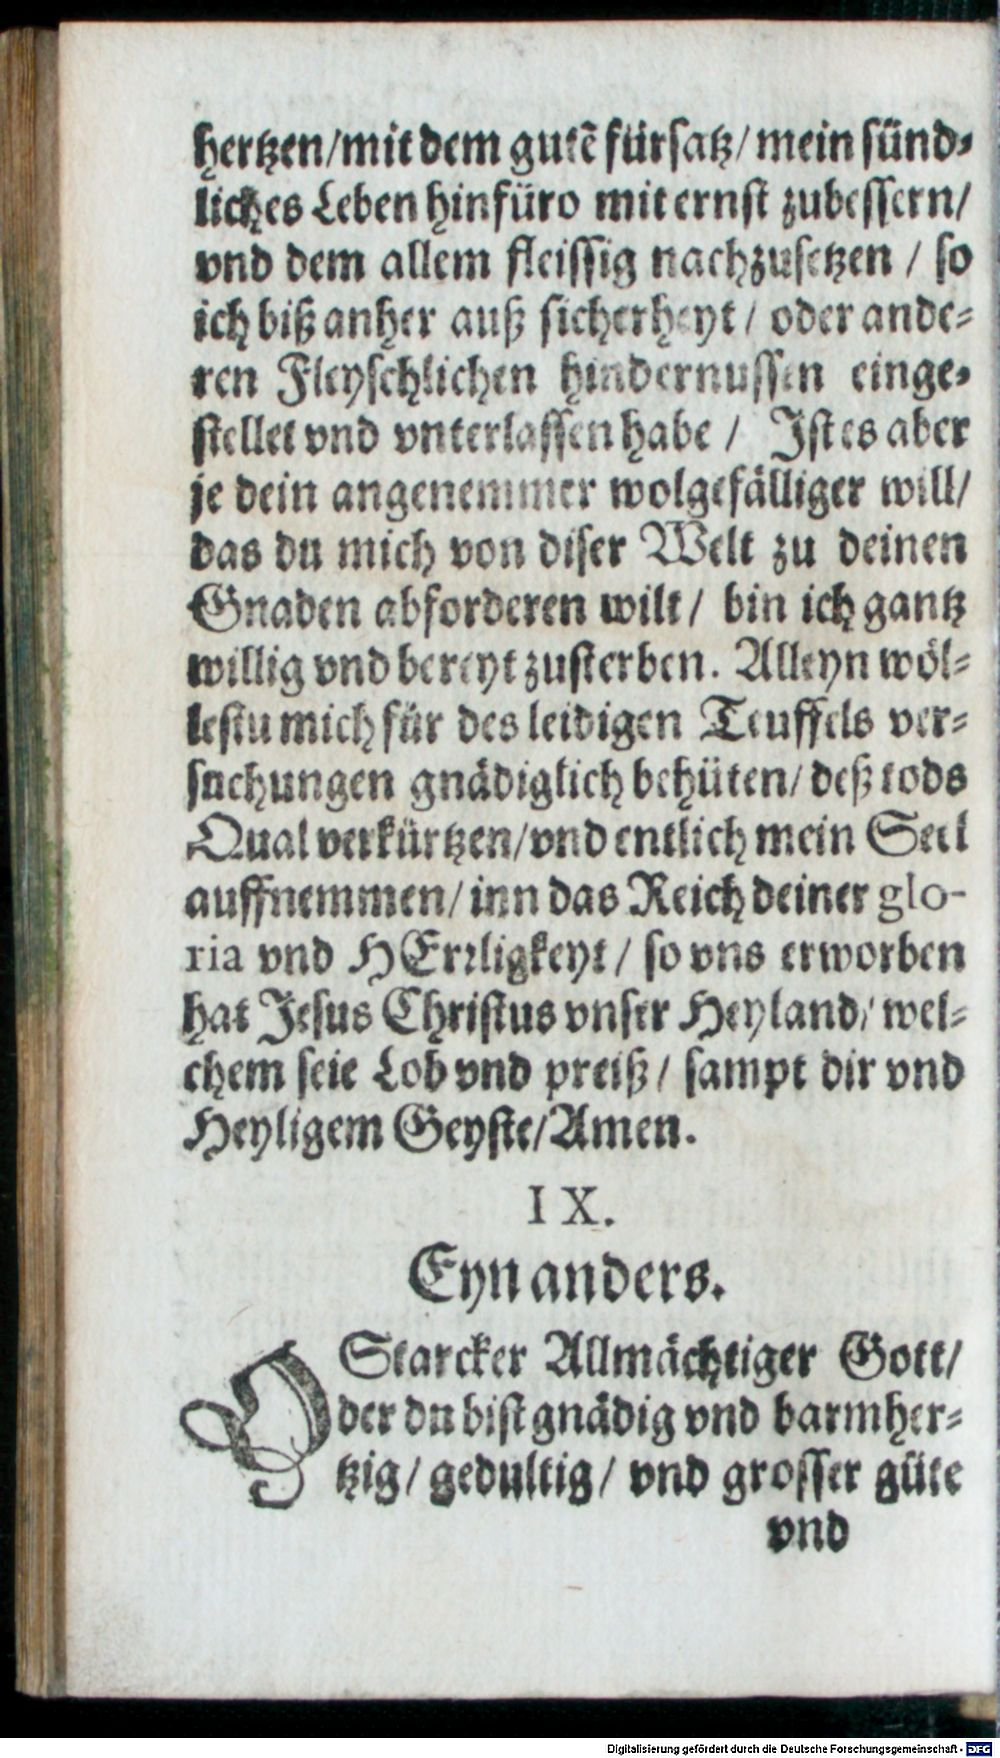 hertzen/mit dem gutẽ fürsatz/mein sünd-
liches Leben hinfüro mit ernst zubessern/
vnd dem allem fleissig nachzusetzen / so
ich biß anher auß sicherheyt / oder ande-
ren Fleyschlichen hindernussen einge-
stellet vnd vnterlassen habe / Ist es aber
je dein angenemmer wolgefälliger will/
das du mich von diser Welt zu deinen
Gnaden abforderen wilt / bin ich gantz
willig vnd bereyt zusterben. Alleyn wöl-
lestu mich für des leidigen Teuffels ver-
suchungen gnädiglich behüten/ deß tods
Qual verkürtzen/vnd entlich mein Seel
auffnemmen/ inn das Reich deiner glo-
ria vnd HErrligkeyt / so vns erworben
hat Jesus Christus vnser Heyland/ wel-
chem seie Lob vnd preiß / sampt dir vnd
Heyligem Geyste/Amen.
IX.
Eyn anders.
O Starcker Allmächtiger Gott/
der du bist gnädig vnd barmher-
tzig / gedultig / vnd grosser güte
vnd
Digitalisierung gefördert durch die Deutsche Forschungsgemeinschaft - DFG